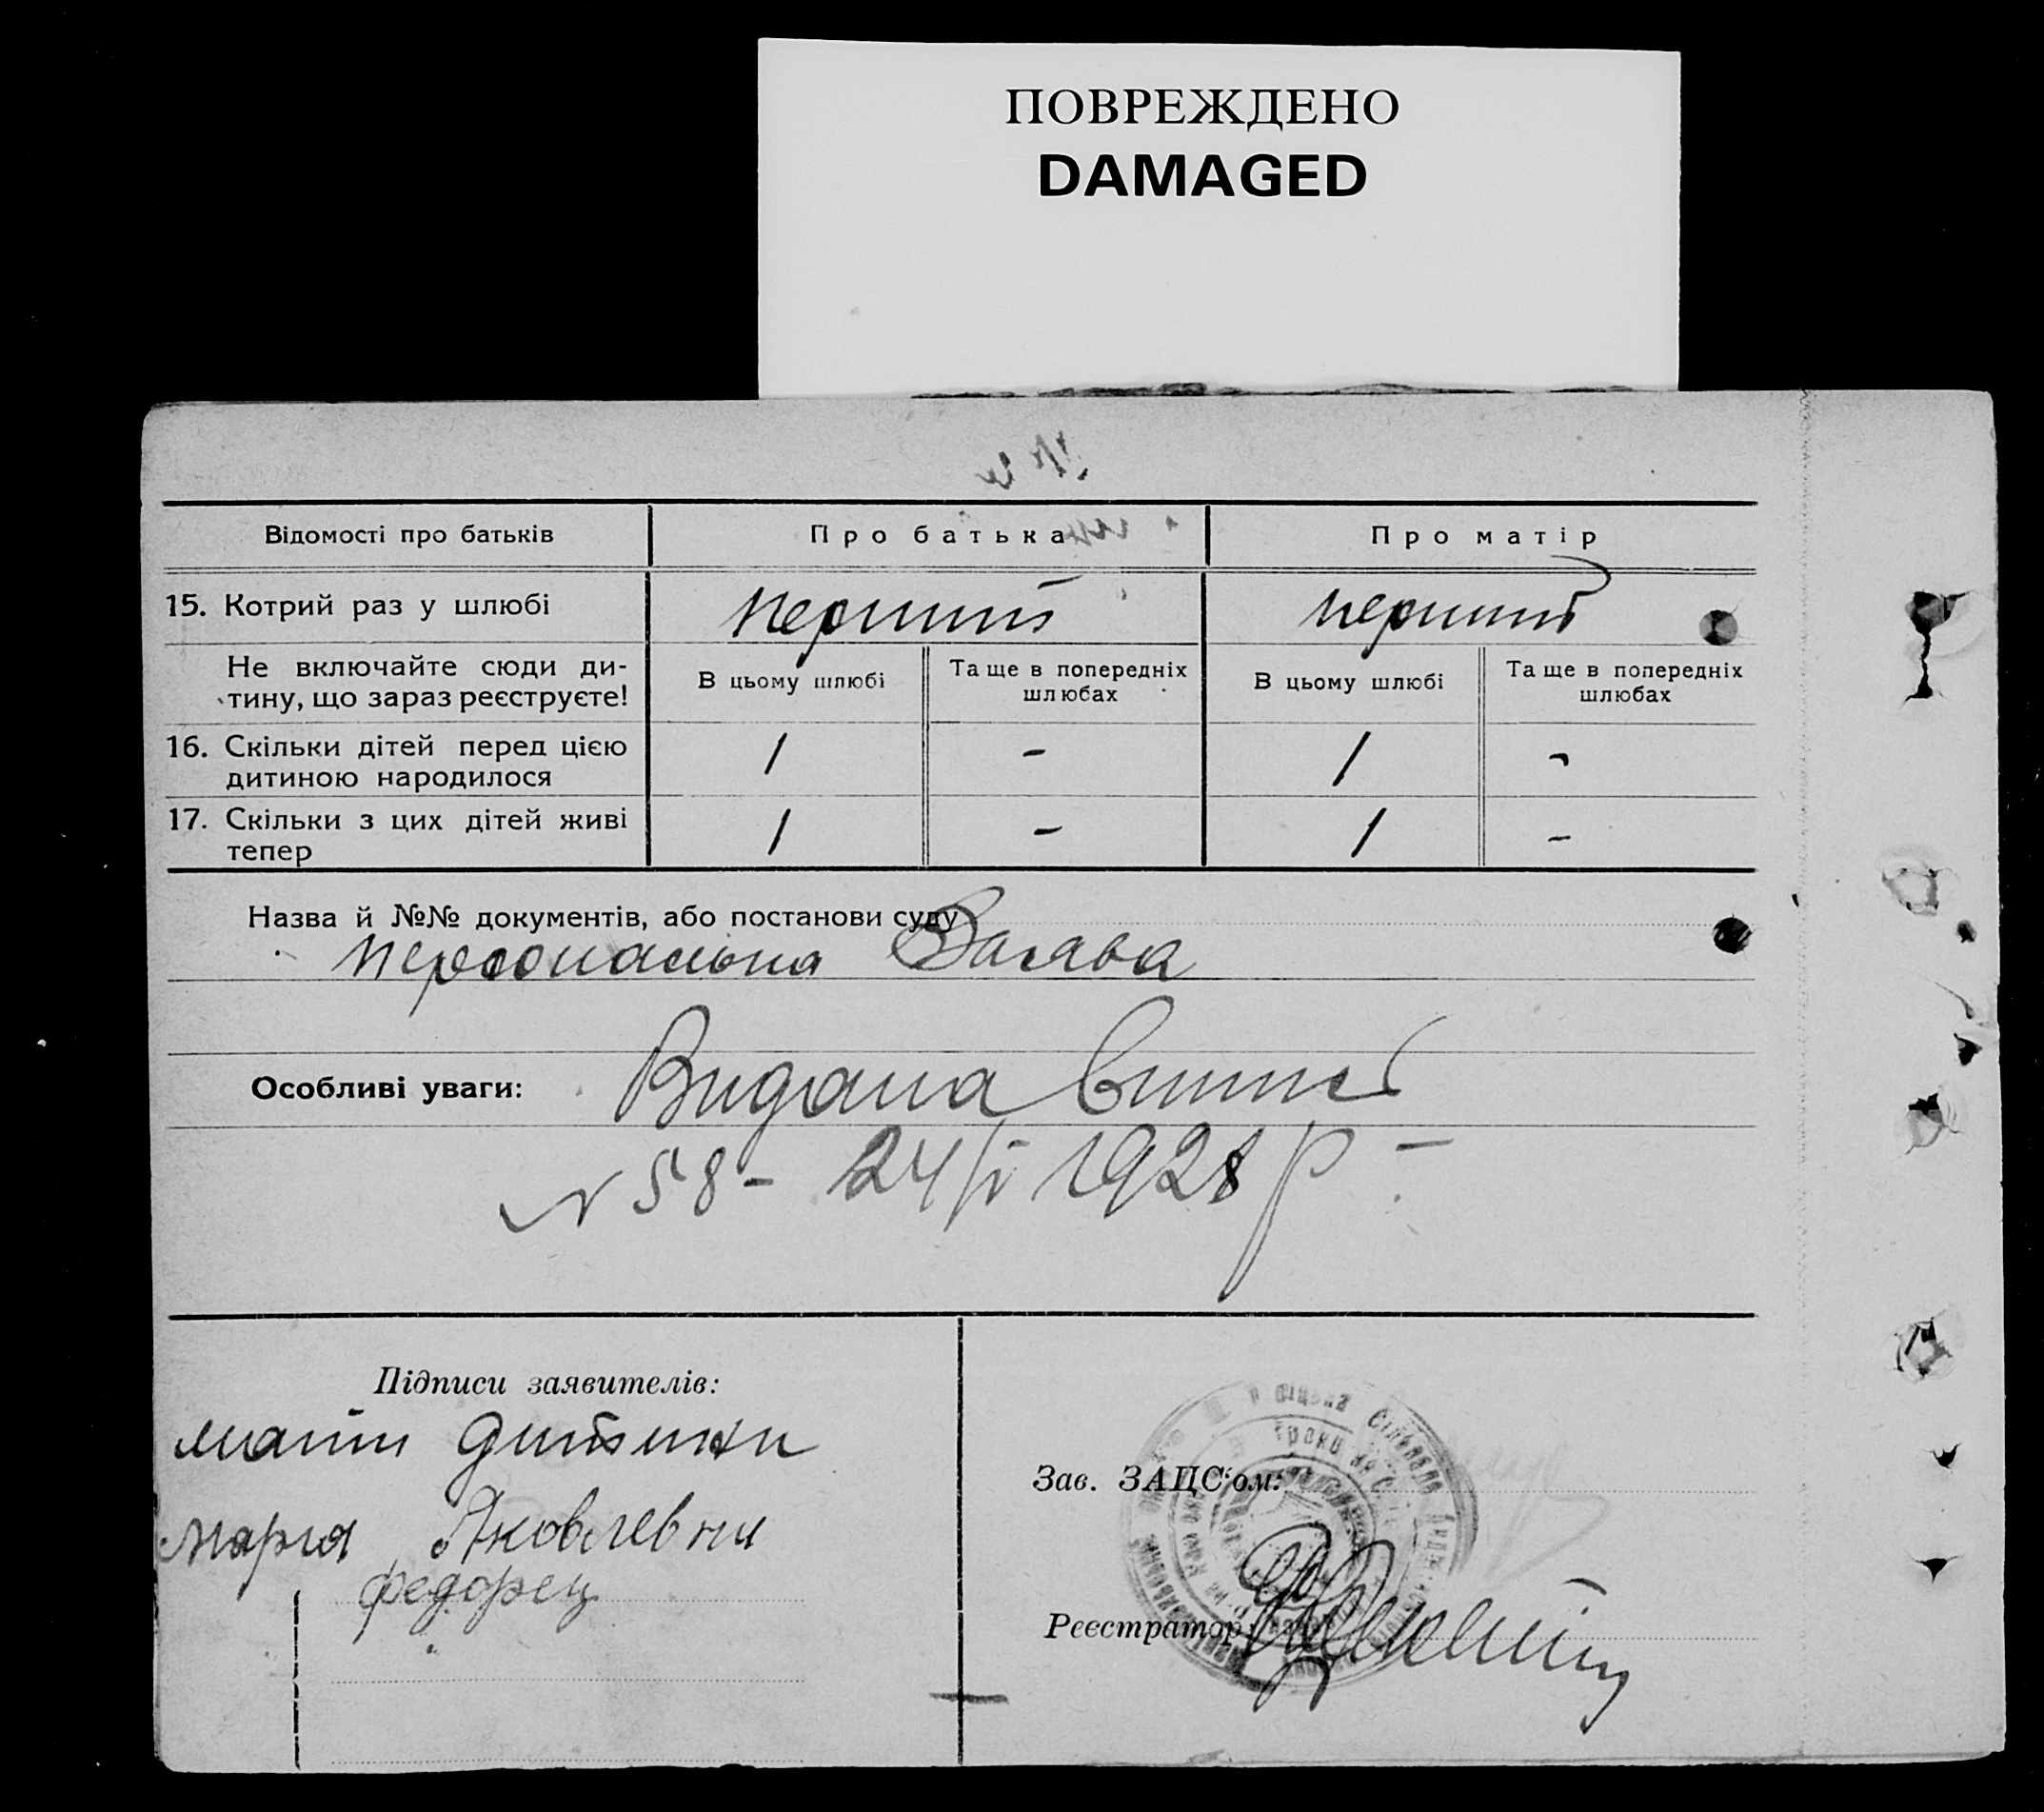 ПОВРЕЖДЕНО
DAMAGED
Відомості про батьків
Про батька
Про матір
15. Котрий раз у шлюбі
перший
перший
Не включайте сюди ди-
тину, що зараз реєструєте!
В цьому шлюбі
Та ще в попередніх
шлюбах
В цьому шлюбі
Та ще в попередніх
шлюбах
16. Скільки дітей перед цією
дитиною народилося
1
-
1
-
17. Скільки з цих дітей живі
тепер
1
-
1
-
Назва й №№ документів, або постанови суду
персональна Заява
Особливі уваги:
Видана
N 58 - 24/I 1928 р -
Підписи заявителів:
Зав. ЗАЦС‘ом:
мати дитини
Мария Яковлевна
Федорец
Реєстратор: